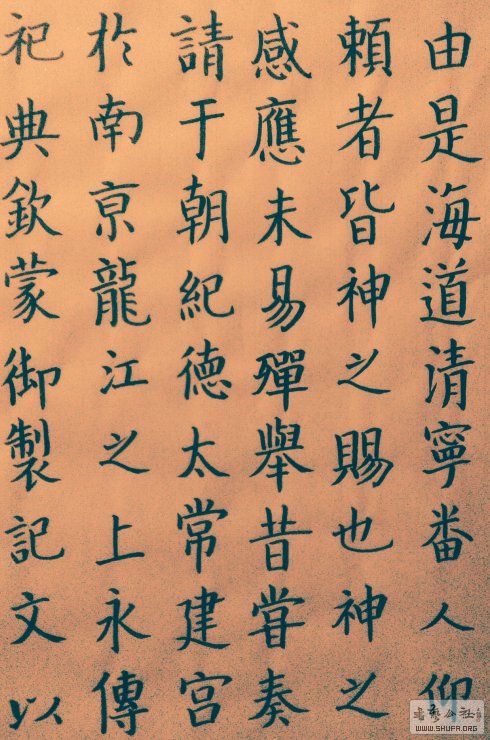 由是海道清寧畨人仰
頼者皆神之賜也神之
感應未易殫舉昔甞奏
請于朝紀德太常建宮
於南京龍江之上永傳
祀典欽蒙御製記文以
書法公社
WWW.SHUFA.ORG